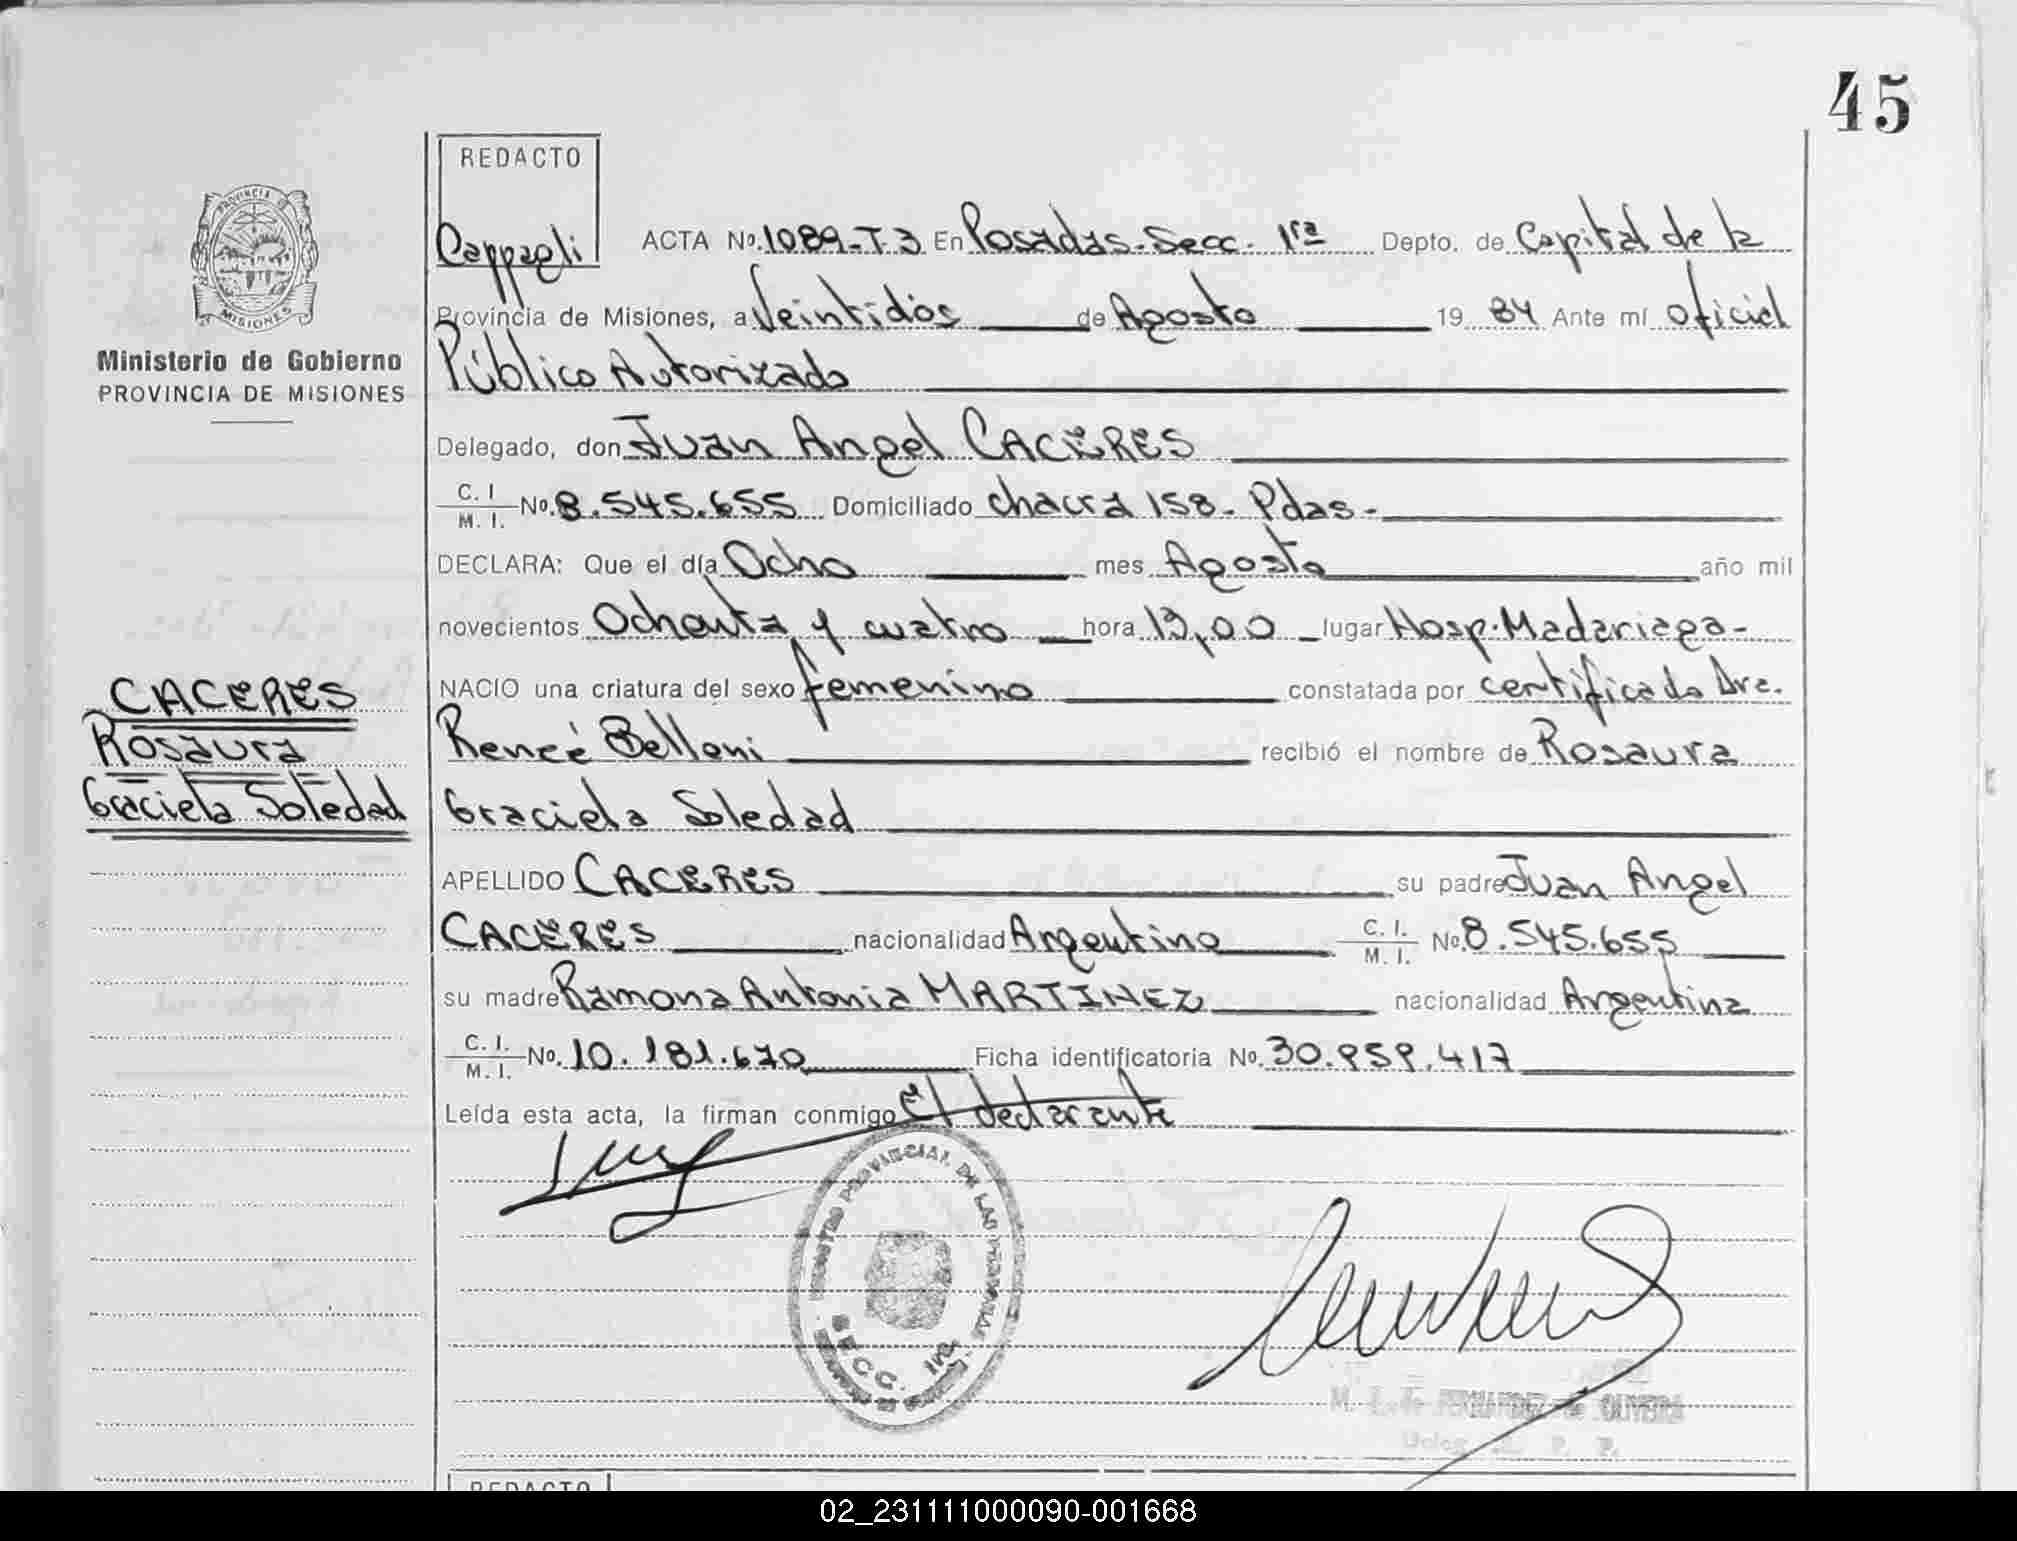 45
REDACTO
Cappagli
PROVINCIA DE
MISIONES
Ministerio de Gobierno
PROVINCIA DE MISIONES
ACTA Nº. 1089-T.3 En Posadas-Secc. 1ra Depto. de Capital de la
Provincia de Misiones, a Veintidós de Agosto 19 84 Ante mí oficial
Público Autorizado
Delegado, don Juan Angel CACERES
C. I. M. I. Nº. 8.545.655 Domiciliado chacra 158- Pdas-
DECLARA: Que el día Ocho mes Agosto año mil
novecientos Ochenta y cuatro hora 13,00 lugar Hosp. Madariaga-
NACIO una criatura del sexo femenino constatada por certificado Dra.
Reneé Belloni recibió el nombre de Rosaura
Graciela Soledad
CACERES
Rosaura
Graciela Soledad
APELLIDO CACERES su padre Juan Angel
CACERES nacionalidad Argentino C. I. M. I. Nº. 8.545.655
su madre Ramona Antonia MARTINEZ nacionalidad Argentina
C. I. M. I. Nº. 10.181.670 Ficha identificatoria Nº. 30.959.417
Leída esta acta, la firman conmigo El declarante
PROVINCIAL DE LAS PERSONAS
SECC. 1ra.
REDACTO
02_231111000090-001668